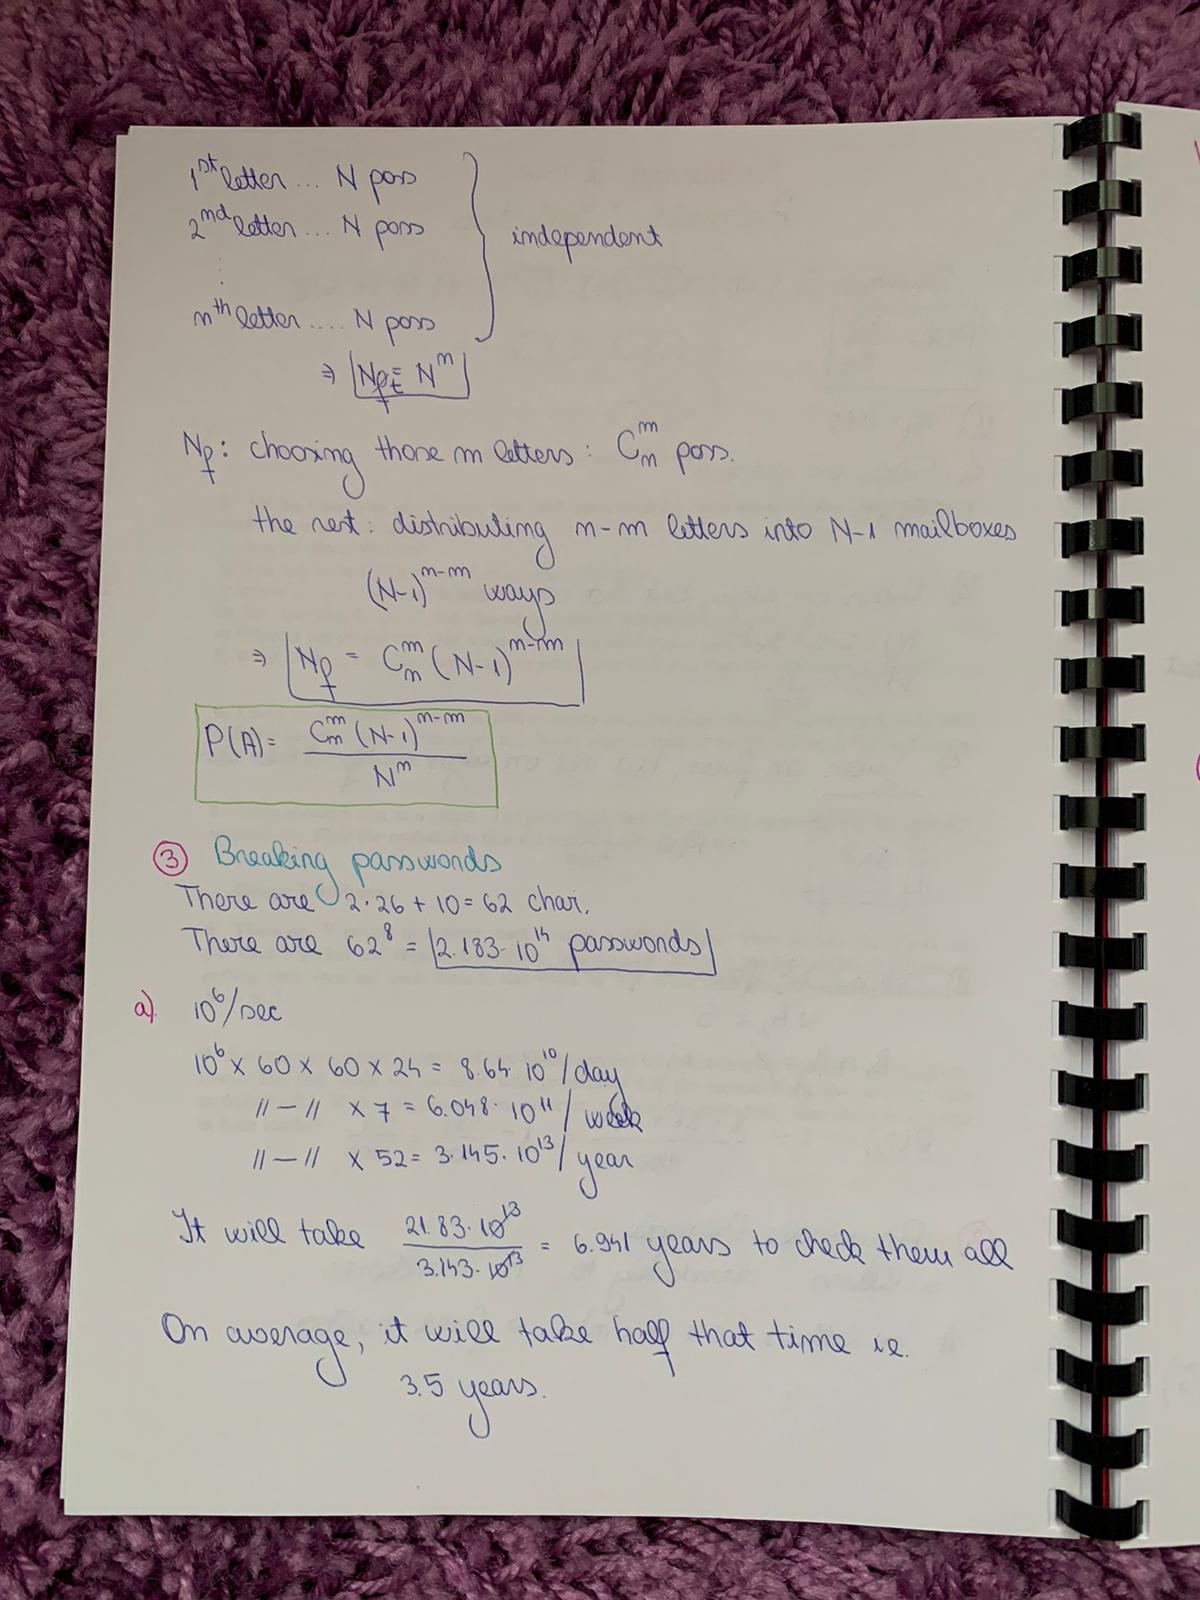 1st letter ... N poss
2nd letter ... N poss
independent
nth letter .... N poss
⇒ Nt = N^n
Nf: choosing those m letters: C_n^m poss.
the rest: distributing n-m letters into N-1 mailboxes
(N-1)^{n-m} ways
⇒ Nf = C_n^m (N-1)^{n-m}
P(A) = C_n^m (N-1)^{n-m} / N^n
③ Breaking passwords
There are 2·26 + 10 = 62 char.
There are 62^8 = 2.183·10^14 passwords
a) 10^6/sec
10^6 x 60 x 60 x 24 = 8.64·10^10/day
〃 — 〃 x 7 = 6.048·10^11/ week
〃 — 〃 x 52 = 3.145·10^13/ year
It will take 21.83·10^13 / 3.143·10^13 = 6.941 years to check them all
On average, it will take half that time i.e.
3.5 years.